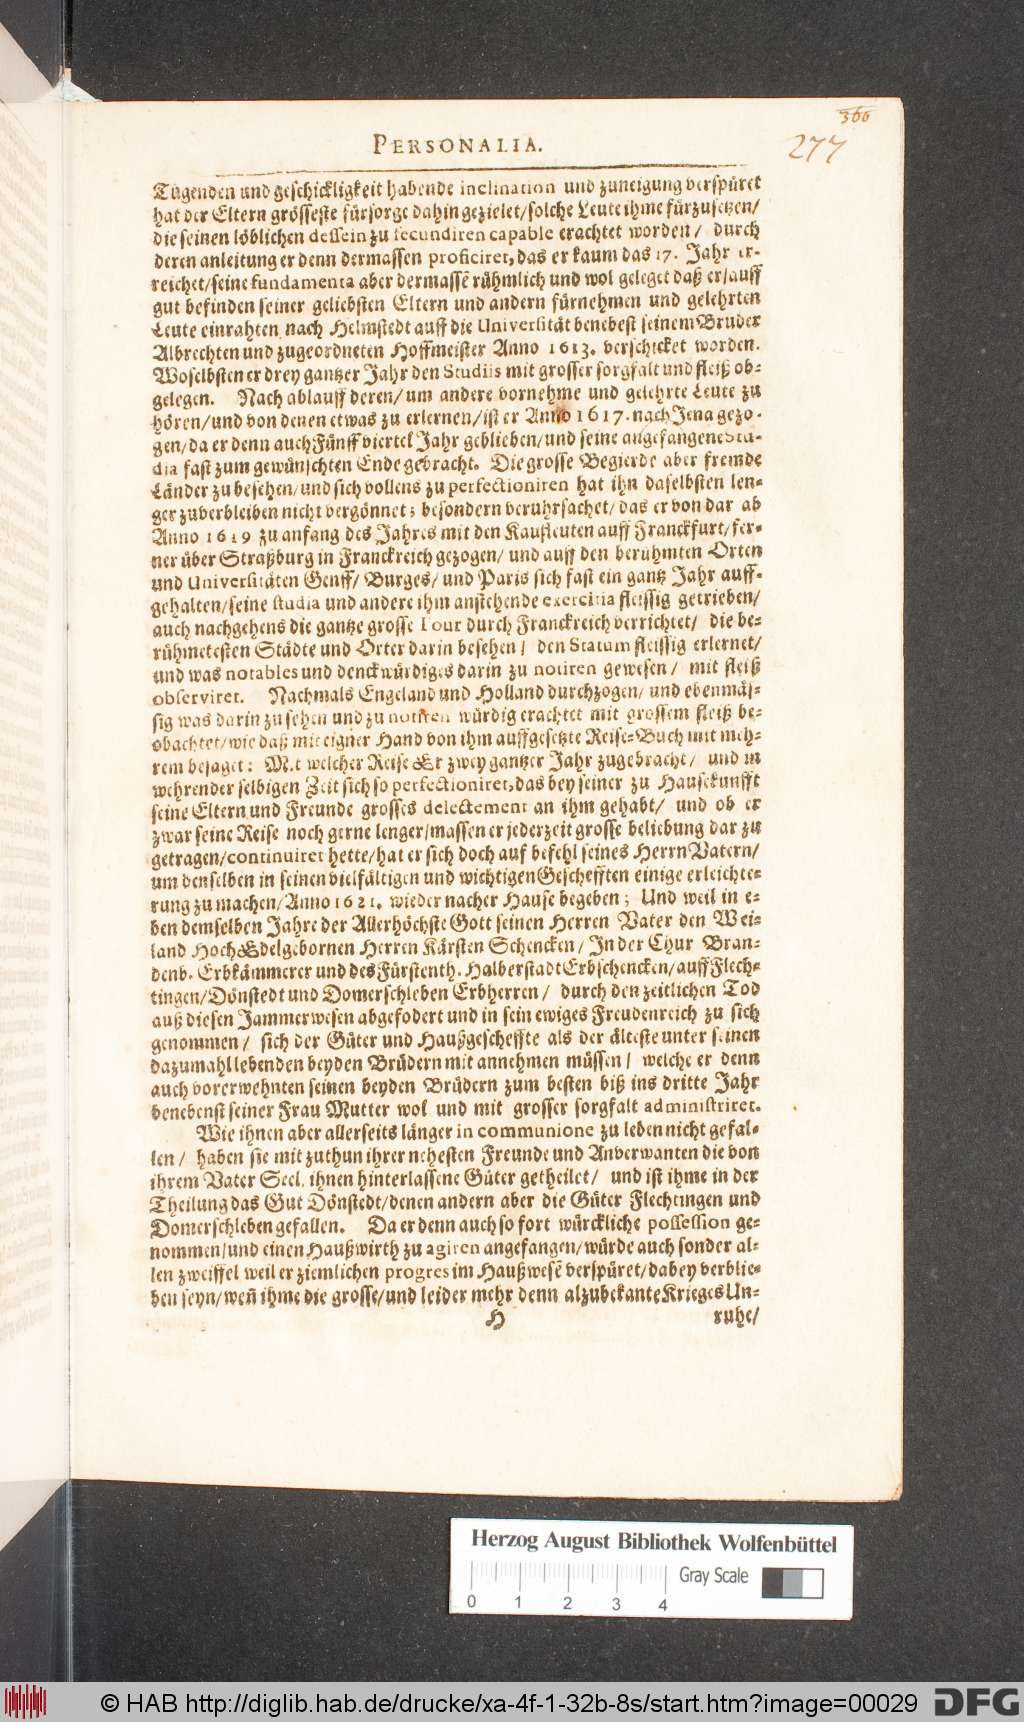 360
277
PERSONALIA.
Tugenden und geschickligkeit habende inclination und zuneigung verspüret
hat der Eltern grösseste fürsorge dahin gezielet/solche Leute ihme fürzusetzen/
die seinen löblichen dessein zu secundiren capable erachtet worden/ durch
deren anleitung er denn dermassen proficiret, das er kaum das 17. Jahr er-
reichet/seine fundamenta aber dermassē rühmlich und wol geleget daß er/auff
gut befinden seiner geliebsten Eltern und andern fürnehmen und gelehrten
Leute einrahten nach Helmstedt auff die Universität benebest seinem Bruder
Albrechten und zugeordneten Hoffmeister Anno 1613. verschicket worden.
Woselbsten er drey gantzer Jahr den Studiis mit grosser sorgfalt und fleiß ob-
gelegen. Nach ablauff deren/ um andere vornehme und gelehrte Leute zu
hören/und von denen etwas zu erlernen/ist er Anno 1617. nach Jena gezo-
gen/da er denn auch Fünff viertel Jahr geblieben/und seine angefangene Stu-
dia fast zum gewünschten Ende gebracht. Die grosse Begierde aber fremde
Länder zu besehen/und sich vollens zu perfectioniren hat ihn daselbsten len-
ger zuverbleiben nicht vergönnet; besondern veruhrsachet/ das er von dar ab
Anno 1619 zu anfang des Jahres mit den Kaufleuten auff Franckfurt/fer-
ner über Straßburg in Franckreich gezogen/ und auff den beruhmten Orten
und Universitäten Genff/ Burges/ und Paris sich fast ein gantz Jahr auff-
gehalten/seine studia und andere ihm anstehende exercitia fleissig getrieben/
auch nachgehens die gantze grosse Tour durch Franckreich verrichtet/ die be-
rühmetesten Städte und Orter darin besehen/ den Statum fleissig erlernet/
und was notables und denckwürdiges darin zu notiren gewesen/ mit fleiß
observiret. Nachmals Engeland und Holland durchzogen/ und ebenmäs-
sig was darin zu sehen und zu notiren würdig erachtet mit grossem fleiß be-
obachtet/wie daß mit eigner Hand von ihm auffgesetzte Reise-Buch mit meh-
rem besaget: Mit welcher Reise Er zwey gantzer Jahr zugebracht/ und in
wehrender selbigen Zeit sich so perfectioniret, das bey seiner zu Hausekunfft
seine Eltern und Freunde grosses delectement an ihm gehabt/ und ob er
zwar seine Reise noch gerne lenger/massen er jederzeit grosse beliebung dar zu
getragen/continuiret hette/hat er sich doch auf befehl seines Herrn Vatern/
um denselben in seinen vielfältigen und wichtigen Geschefften einige erleichte-
rung zu machen/Anno 1621. wieder nacher Hause begeben; Und weil in e-
ben demselben Jahre der Allerhöchste Gott seinen Herren Vater den Wei-
land HochEdelgebornen Herren Kärsten Schencken/ In der Chur Bran-
denb. Erbkämmerer und des Fürstenth. Halberstadt Erbschencken/auff Flech-
tingen/Dönstedt und Domerschleben Erbherren/ durch den zeitlichen Tod
auß diesen Jammerwesen abgefodert und in sein ewiges Freudenreich zu sich
genommen/ sich der Güter und Haußgescheffte als der älteste unter seinen
dazumahl lebenden beyden Brüdern mit annehmen müssen/ welche er denn
auch vorerwehnten seinen beyden Brüdern zum besten biß ins dritte Jahr
benebenst seiner Frau Mutter wol und mit grosser sorgfalt administriret.
Wie ihnen aber allerseits länger in communione zu leben nicht gefal-
len/ haben sie mit zuthun ihrer nehesten Freunde und Anverwanten die von
ihrem Vater Seel. ihnen hinterlassene Güter getheilet/ und ist ihme in der
Theilung das Gut Dönstedt/denen andern aber die Güter Flechtingen und
Domerschleben gefallen. Da er denn auch so fort würckliche possession ge-
nommen/und einen Haußwirth zu agiren angefangen/würde auch sonder al-
len zweiffel weil er ziemlichen progres im Haußwesē verspüret/dabey verblie-
ben seyn/weñ ihme die grosse/und leider mehr denn alzubekante Krieges Un-
H ruhe/
Herzog August Bibliothek Wolfenbüttel
Gray Scale
0 1 2 3 4
© HAB http://diglib.hab.de/drucke/xa-4f-1-32b-8s/start.htm?image=00029 DFG